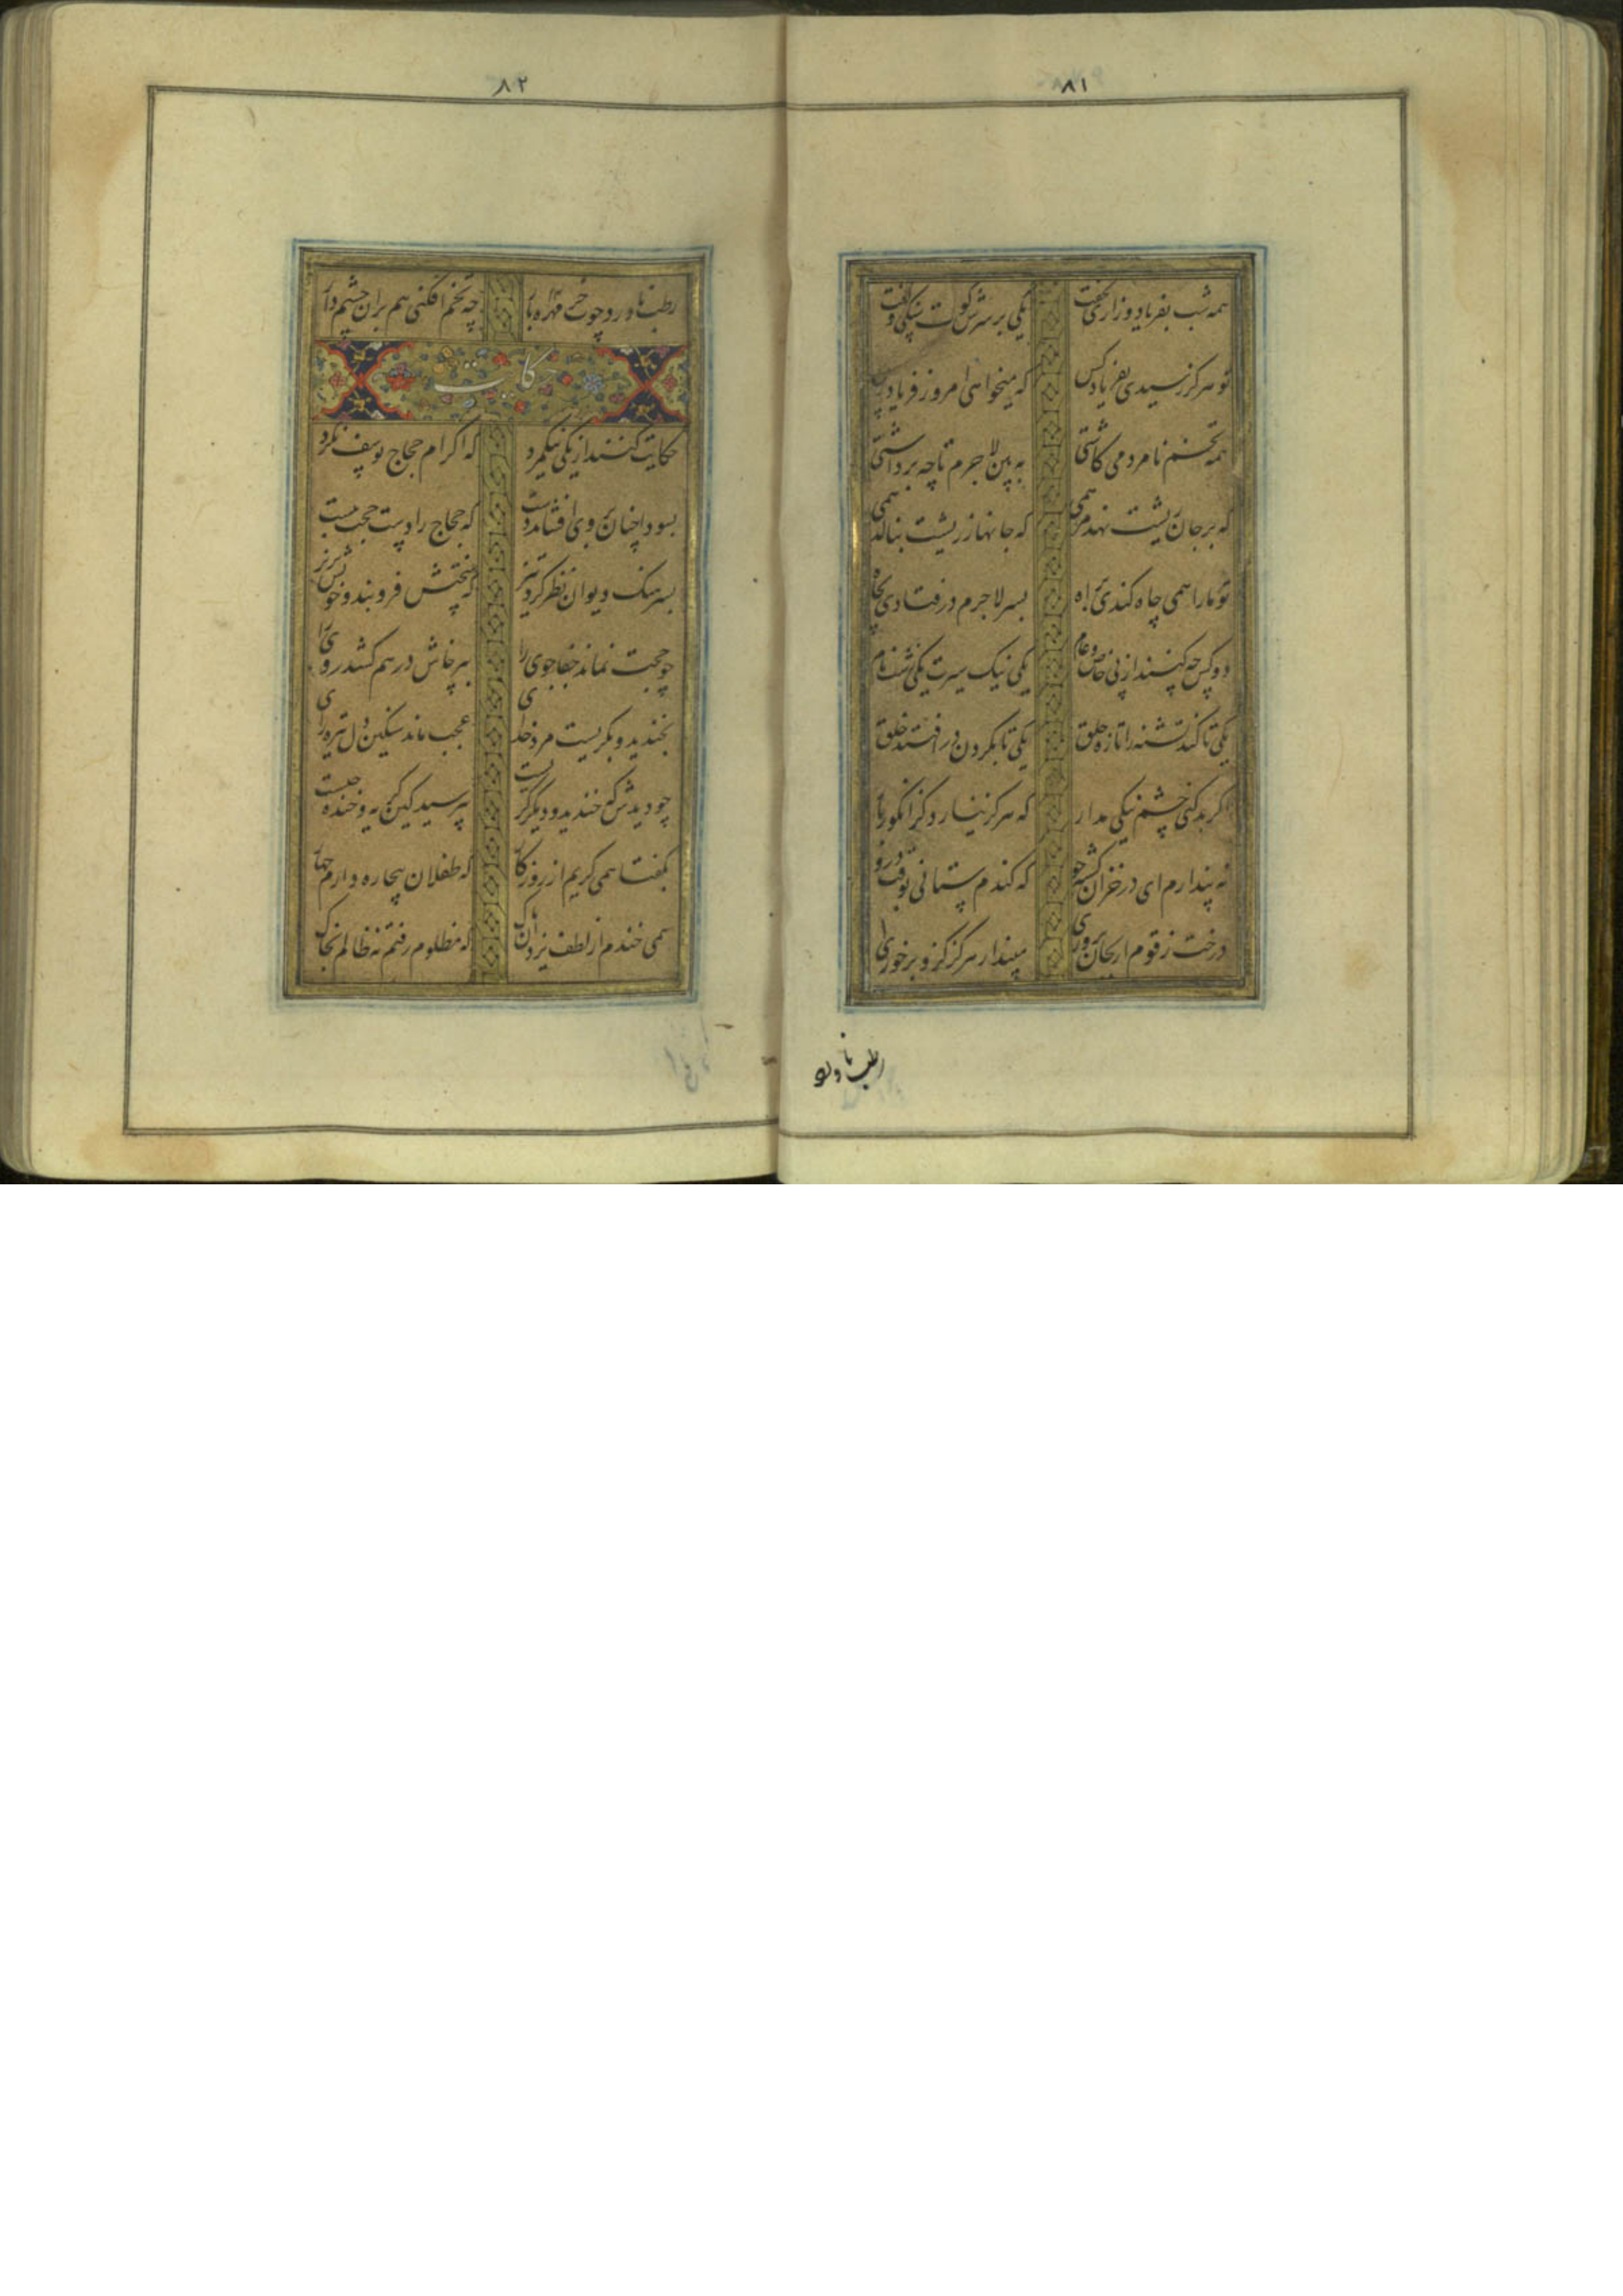 ۸۱
همه شب بفریاد وزاری نخفت یکی بر سرش کوفت سنگی و گفت
تو هرگز رسیدی بفریاد کس که میخواهی امروز فریادرس
همه تخم نامردمی کاشتی به بین لاجرم تا چه برداشتی
که بر جان ریشت نهد مرهمی که جانها ز ریشت بنالد همی
تو ما را همی چاه کندی براه بسر لاجرم در فتادی بچاه
دو کس چه کنند از پی خاص و عام یکی نیک سیرت یکی زشت نام
یکی تا کند تشنه را تازه حلق یکی تا بگردن در افتند خلق
اگر بد کنی چشم نیکی مدار که هرگز نیارد گز انگور بار
نه پندارم ای در خزان کشته جو که گندم ستانی بوقت درو
درخت زقوم ار بجان پروری مپندار هرگز کزو بر خوری
رطب ناورد
۸۲
رطب ناورد چوب خرزهره بار چه تخم افکنی هم بران چشم دار
حکایت
حکایت کنند از یکی نیکمرد که اکرام حجاج یوسف نکرد
بسودا چنان بر وی افشاند دست که حجاج را دست حجت ببست
بسرهنگ دیوان نظر کرد تیز که نطعش فروبند و خونش بریز
چو حجت نماند جفاجوی را بپرخاش در هم کشد روی را
بخندید و بگریست مرد خدای عجب ماند سنگین دل تیره رای
چو دیدش که خندید و دیگر گریست بپرسید کین گریه و خنده چیست
بگفتا همی گریم از روزگار که طفلان بیچاره دارم چهار
همی خندم از لطف یزدان پاک که مظلوم رفتم نه ظالم بخاک